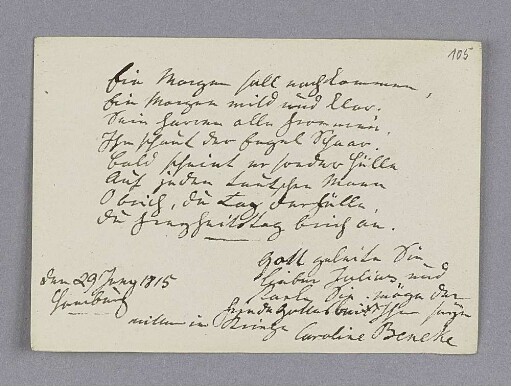 105
Ein Morgen soll noch kommen,
Ein Morgen mild und klar.
Sein harren alle Frommen,
Ihn schaut der Engel Schaar.
Bald scheint er sonder Hülle
Auf jeden teutschen Mann
O brich, du Tag der Fülle,
du Freyheitstag brich an.
Gott geleite Sie
lieber Julius und
Sie möge der
Friede Gottes
mitten im Kriege
Caroline Beneke
den 29 Juny 1815
Hamburg